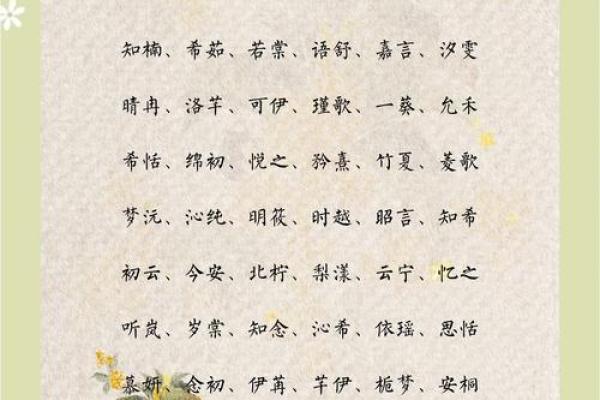 知楠、希茹、若棠、语舒、嘉言、汐雯
晴冉、洛芊、可伊、瑾歌、一葵、允禾
希恬、绵初、悦之、矜熹、竹夏、菱歌
梦沅、沁纯、明筱、时越、昭言、知希
初云、今安、北柠、梨漾、云宁、忆之
听岚、岁棠、知念、沁希、依瑶、思恬
慕妍、念初、伊苒、芊伊、栀梦、安桐